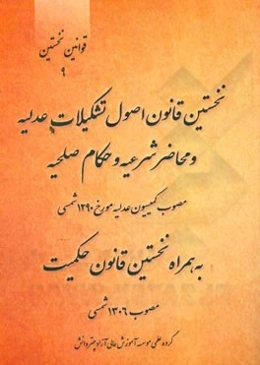 قوانین نخستین
۹
نخستین قانون اصول تشکیلات عدلیه
و محاضر شرعیه و حکام صلحیه
مصوب کمیسیون عدلیه مورخ ۱۲۹۰ شمسی
به همراه نخستین قانون حکمیت
مصوب ۱۳۰۶ شمسی
گروه علمی موسسه آموزش عالی آزاد چتر دانش